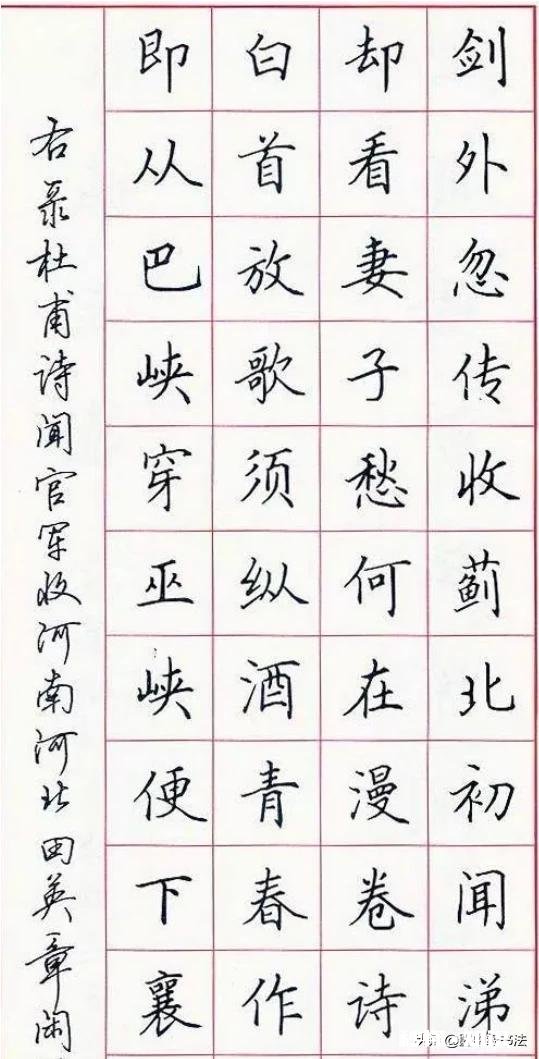 剑外忽传收蓟北初闻涕
却看妻子愁何在漫卷诗
白首放歌须纵酒青春作
即从巴峡穿巫峡便下襄
右录杜甫诗闻官军收河南河北田英章
书法